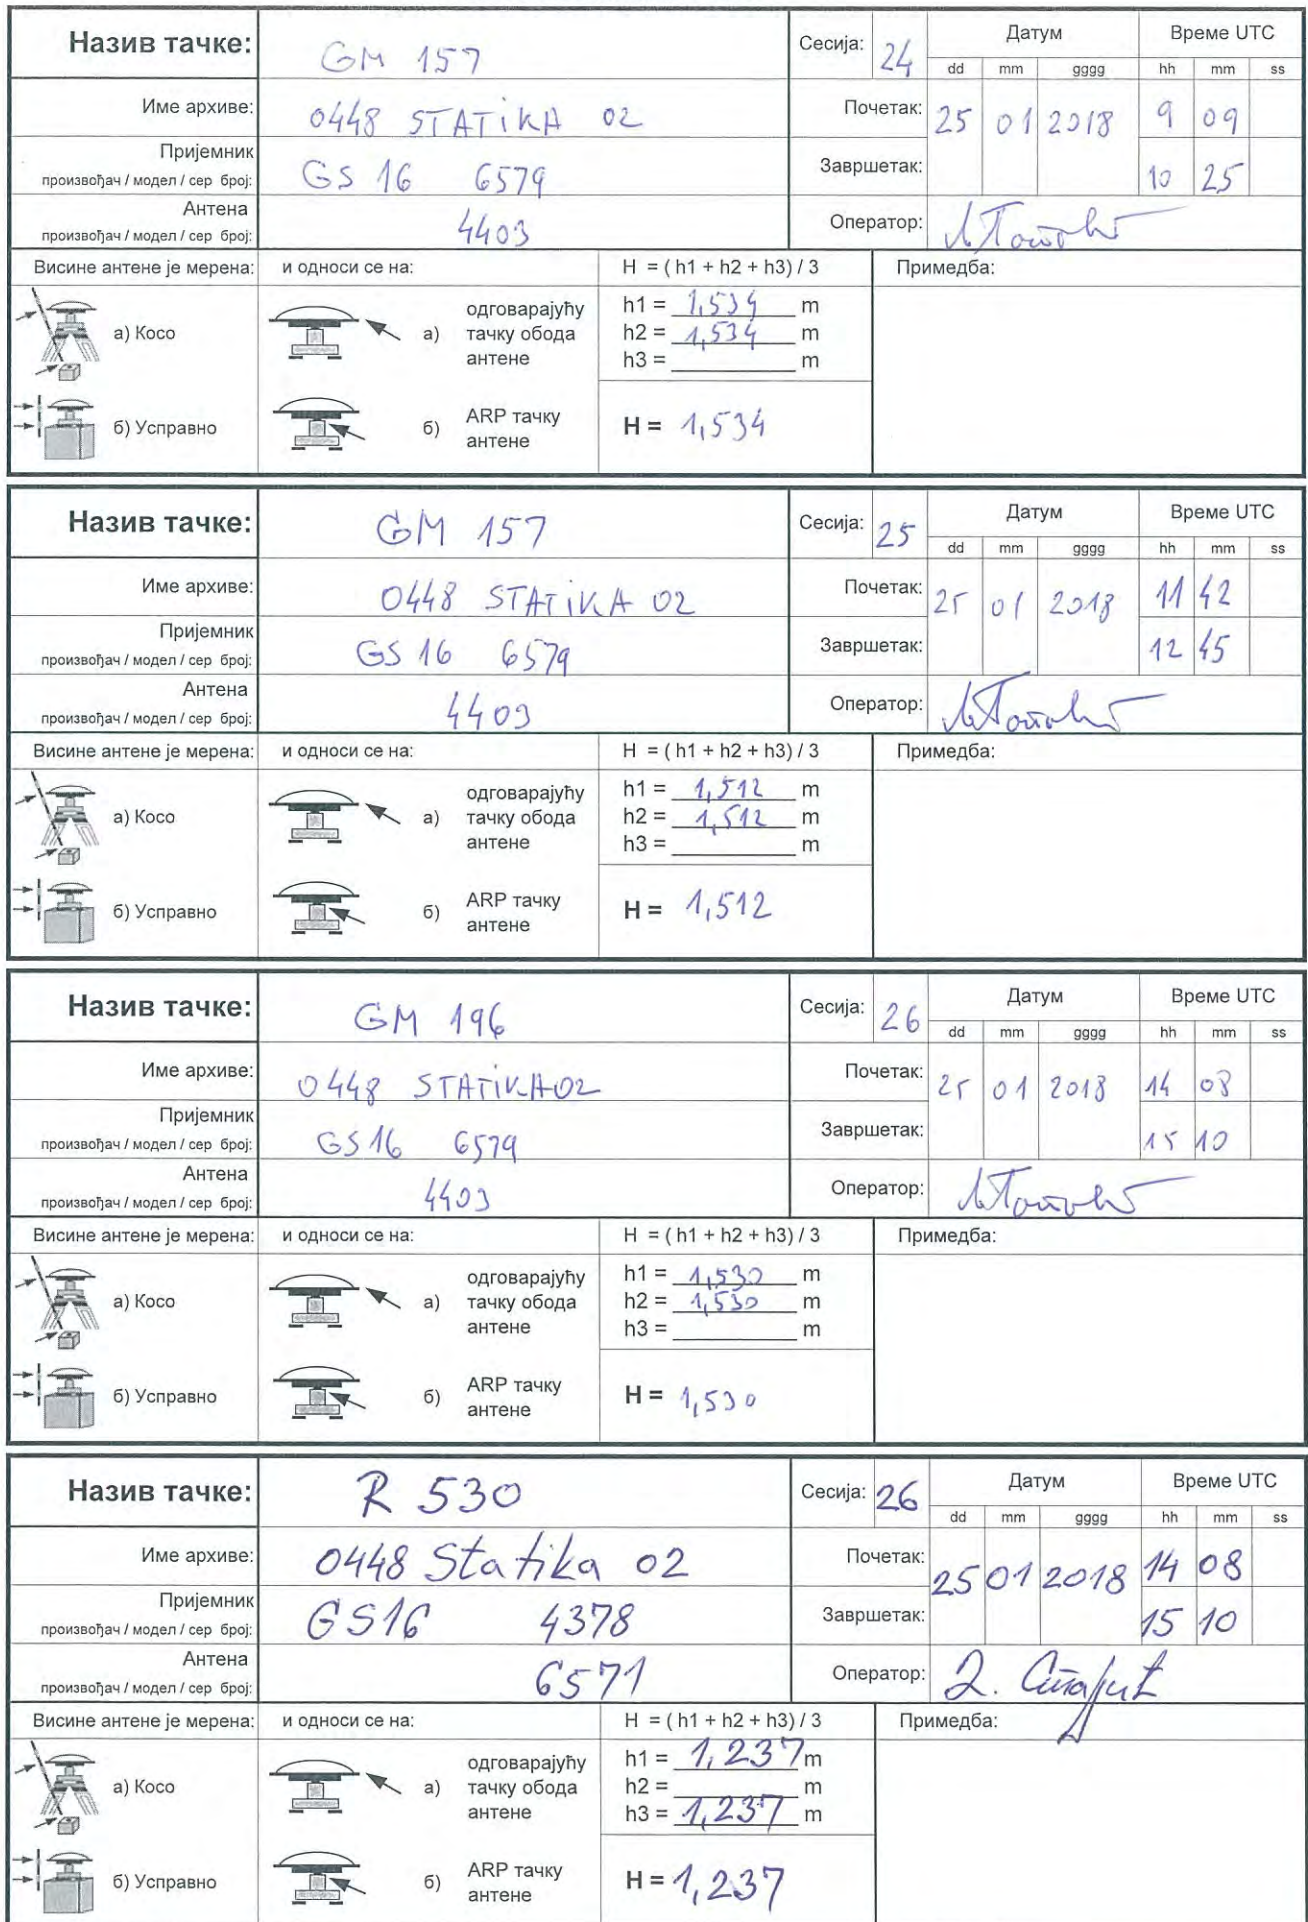 Назив тачке: GM 157 Сесија: 24 Датум Време UTC
dd mm gggg hh mm ss
Име архиве: 0448 STATiKA 02 Почетак: 25 01 2018 9 09
Пријемник
произвођач / модел / сер број: GS 16 6579 Завршетак: 10 25
Антена
произвођач / модел / сер број: 4403 Оператор:
Висине антене је мерена: и односи се на: H = ( h1 + h2 + h3) / 3 Примедба:
а) Косо а) одговарајућу тачку обода антене
h1 = 1,534 m
h2 = 1,534 m
h3 = m
б) Усправно б) ARP тачку антене H = 1,534
Назив тачке: GM 157 Сесија: 25 Датум Време UTC
dd mm gggg hh mm ss
Име архиве: 0448 STATiKA 02 Почетак: 25 01 2018 11 42
Пријемник
произвођач / модел / сер број: GS 16 6579 Завршетак: 12 45
Антена
произвођач / модел / сер број: 4403 Оператор:
Висине антене је мерена: и односи се на: H = ( h1 + h2 + h3) / 3 Примедба:
а) Косо а) одговарајућу тачку обода антене
h1 = 1,512 m
h2 = 1,512 m
h3 = m
б) Усправно б) ARP тачку антене H = 1,512
Назив тачке: GM 196 Сесија: 26 Датум Време UTC
dd mm gggg hh mm ss
Име архиве: 0448 STATiKA02 Почетак: 25 01 2018 14 08
Пријемник
произвођач / модел / сер број: GS 16 6579 Завршетак: 15 10
Антена
произвођач / модел / сер број: 4403 Оператор:
Висине антене је мерена: и односи се на: H = ( h1 + h2 + h3) / 3 Примедба:
а) Косо а) одговарајућу тачку обода антене
h1 = 1,530 m
h2 = 1,530 m
h3 = m
б) Усправно б) ARP тачку антене H = 1,530
Назив тачке: R 530 Сесија: 26 Датум Време UTC
dd mm gggg hh mm ss
Име архиве: 0448 Statika 02 Почетак: 25 01 2018 14 08
Пријемник
произвођач / модел / сер број: GS16 4378 Завршетак: 15 10
Антена
произвођач / модел / сер број: 6571 Оператор:
Висине антене је мерена: и односи се на: H = ( h1 + h2 + h3) / 3 Примедба:
а) Косо а) одговарајућу тачку обода антене
h1 = 1,237 m
h2 = m
h3 = 1,237 m
б) Усправно б) ARP тачку антене H = 1,237